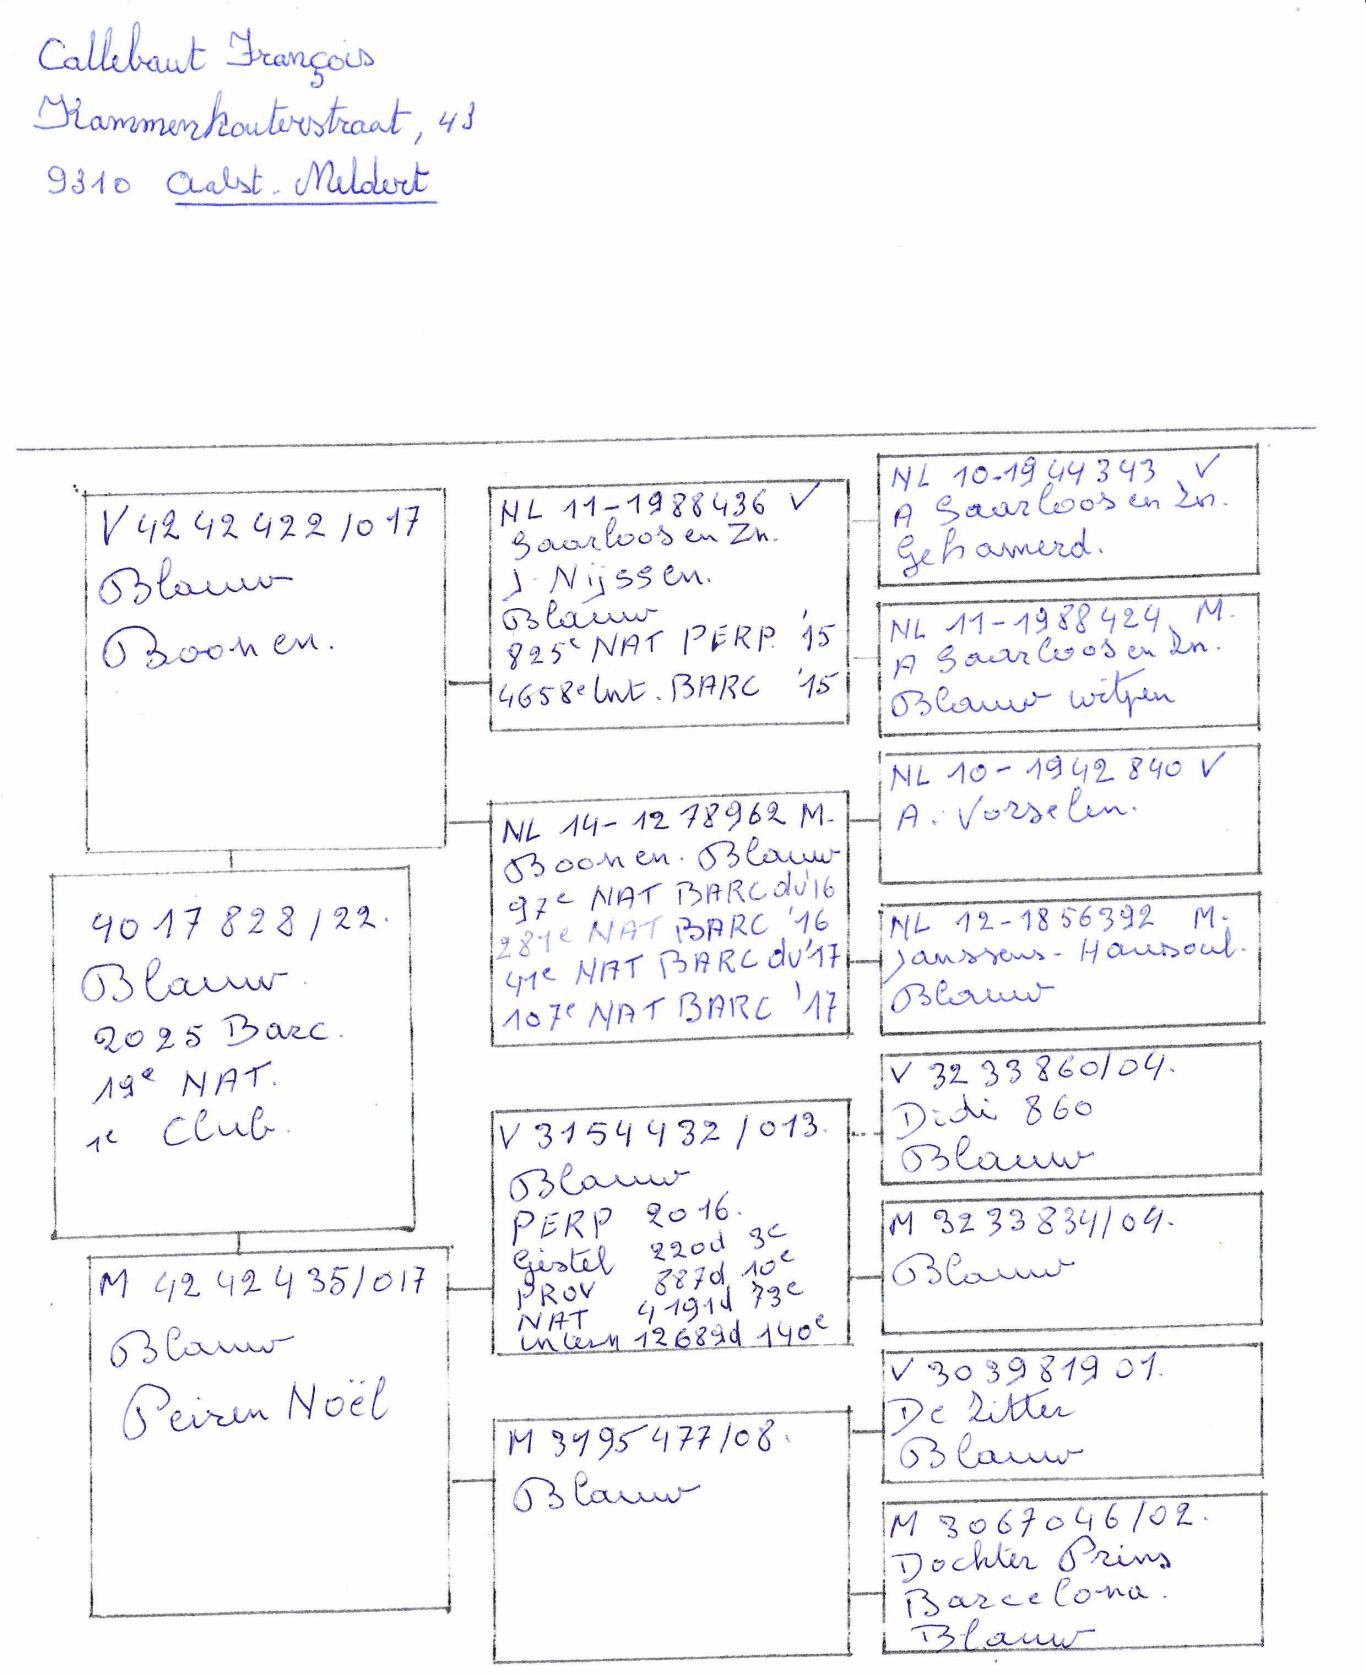 Callebaut François
Kammenkouterstraat, 43
9310 Aalst. Meldert
V 4242422/017
Blauw
Boonen.
40 17 828/22.
Blauw.
2025 Barc.
19e NAT.
1e Club.
M 4242435/017
Blauw
Peiren Noël
NL 11-1988436 V
Saarloos en Zn.
J. Nijssen.
Blauw
825e NAT PERP. '15
4658e Int. BARC '15
NL 14-1278962 M.
Boonen. Blauw
97e NAT BARC du'16
281e NAT BARC '16
41e NAT BARC du'17
107e NAT BARC '17
V 3154432/013.
Blauw
PERP 2016.
Gistel 220d 3e
PROV 887d 10e
NAT 4191d 73e
intern 12689d 140e
M 3195477/08.
Blauw
NL 10-1944343 V
A Saarloos en Zn.
Gehamerd.
NL 11-1988424 M.
A Saarloos en Zn.
Blauw witpen
NL 10-1942840 V
A. Vorselen.
NL 12-1856392 M.
Janssens-Hausoul.
Blauw
V 3233860/04.
Didi 860
Blauw
M 3233834/04.
Blauw
V 3039819 01.
De Zitter
Blauw
M 3067046/02.
Dochter Prins
Barcelona.
Blauw